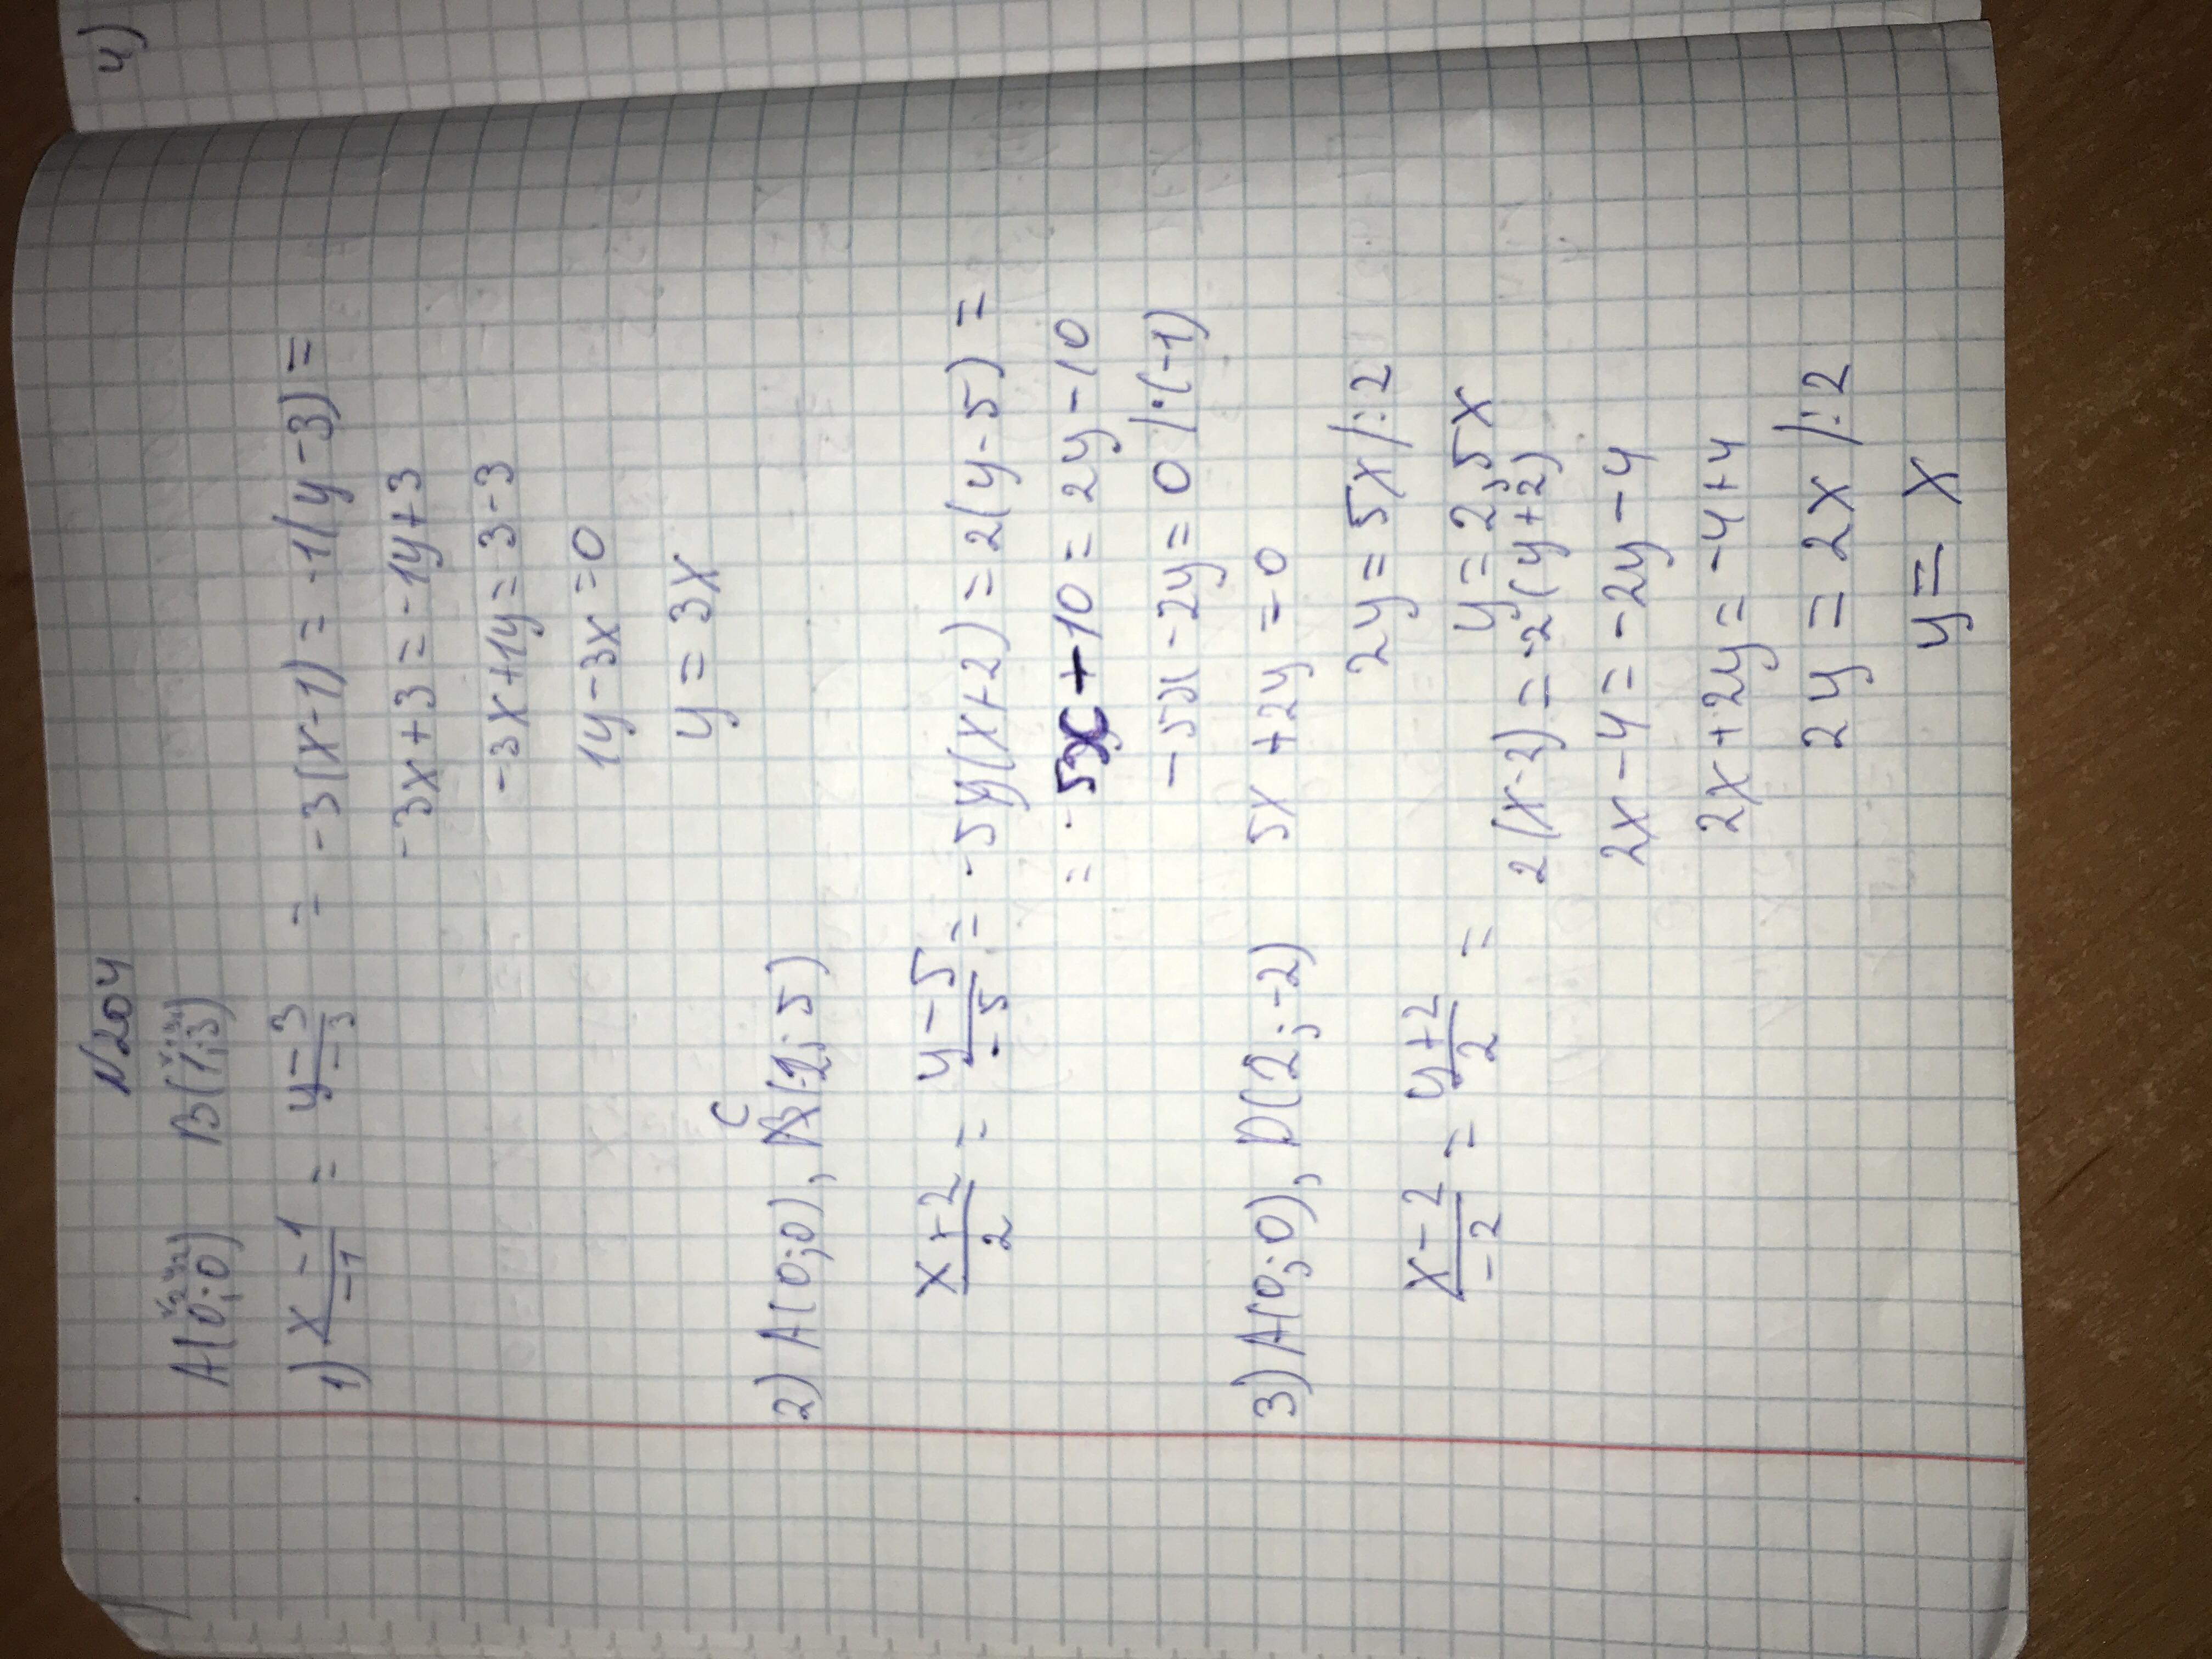 №204
A(0;0) B(1;3)
1) x-1/-1 = y-3/-3 = -3(x-1) = -1(y-3) =
-3x+3 = -1y+3
-3x+1y = 3-3
1y-3x = 0
y = 3x
2) A(0;0), C(-2; 5)
x+2/2 = y-5/-5 = -5(x+2) = 2(y-5) =
= -5x+10 = 2y-10
-5x-2y = 0 /·(-1)
5x+2y = 0
2y = 5x /:2
y = 2,5x
3) A(0;0), D(2;-2)
x-2/-2 = y+2/2 =
2(x-2) = -2(y+2)
2x-4 = -2y-4
2x+2y = -4+4
2y = 2x /:2
y = x
4)